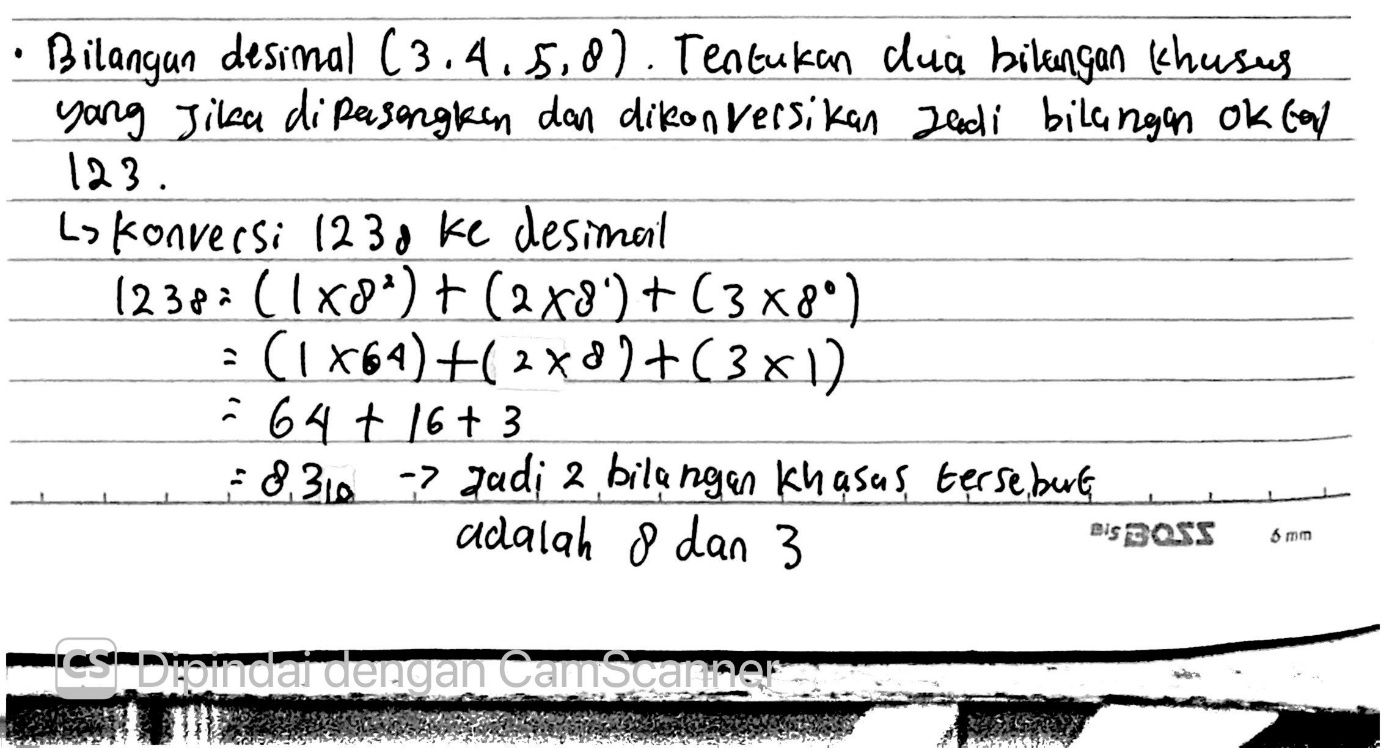 • Bilangan desimal (3, 4, 5, 8). Tentukan dua bilangan khusus
yang jika dipasangkan dan dikonversikan jadi bilangan oktal
123.
↳ Konversi 123₈ ke desimal
123₈ = (1 × 8²) + (2 × 8¹) + (3 × 8⁰)
= (1 × 64) + (2 × 8) + (3 × 1)
= 64 + 16 + 3
= 83₁₀ -> jadi 2 bilangan khasus tersebut
adalah 8 dan 3
Bis BOSS 6 mm
CS Dipindai dengan CamScanner